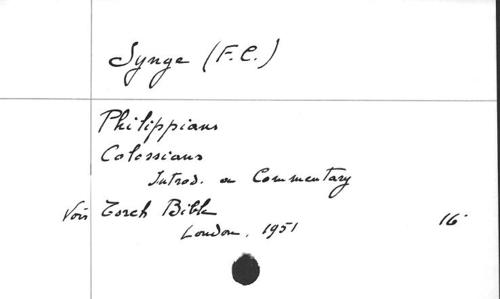 Synge (F.C.)
Philippians
Colossians
Introd. a Commentary
Voir Torch Bible
London, 1951
16°